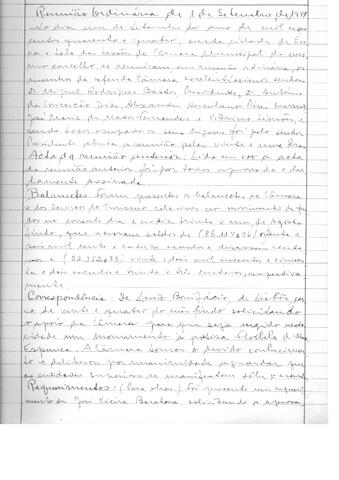 Reunião Ordinária de 1 de Setembro de 1944
No dia um de Setembro do ano de mil nove
centos quarenta e quatro, nesta cidade de Évo
ra e sala das sessões da Câmara Municipal do mes
mo concelho, se reuniram em reunião ordinária, os
membros da referida Câmara excelentíssimos senhores
Dr. Miguel Rodrigues Bastos, Presidente, Dr. António
da Conceição Dias, Alexandre
José Maria de
sendo todos ocupado os seus lugares foi pelo senhor
Presidente aberta a reunião pelas vinte e uma horas
Acta da reunião anterior: Lida em voz a acta
da reunião anterior foi por todos aprovada e
damente assinada.
Balancetes: Foram presentes os balancetes da Câmara
e dos Serviços de Turismo relativos ao movimento de
do no corrente dia e no dia trinta e um de Agosto
findo, que acusam saldos de (86.114$16) oitenta e
seis mil cento e catorze escudos e dezasseis centa
vos e (22.252$33) vinte e dois mil duzentos e cincoen
ta e dois escudos e trinta e três centavos, respectiva
mente.
Correspondência: De Luiz Bonifácio, de Lisboa,
de vinte e quatro do mês findo solicitando
o apoio da Câmara para que seja erigido nesta
cidade um monumento à poetisa Florbela d'
Espanca. A Câmara tomou o devido conhecimen
to e deliberou por unanimidade aguardar que
as entidades superiores se manifestem sôbre o assunto
Requerimentos: (Para obras) Foi presente um requeri
mento de José Vieira Barahona, solicitando a aprova